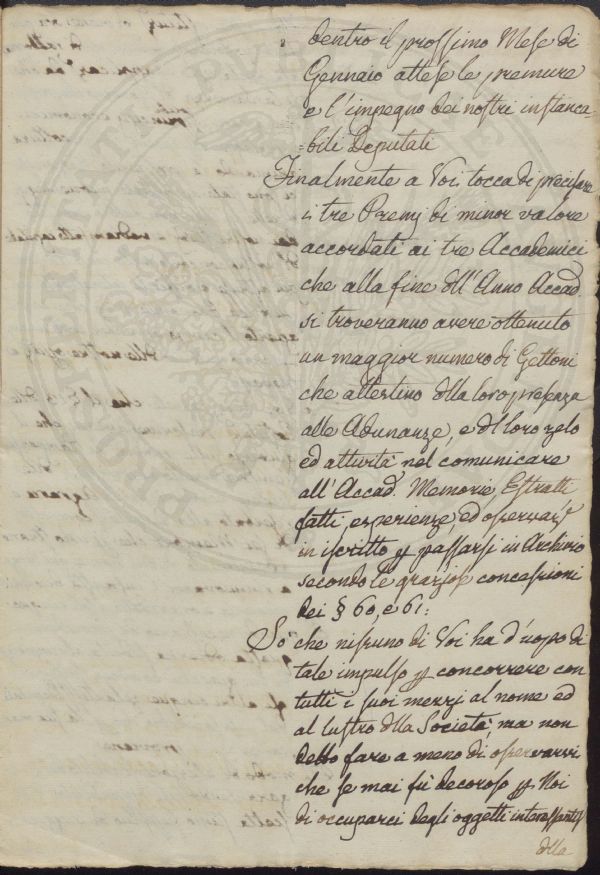 dentro il prossimo Mese di
Gennaio attese le premure
e l'impegno dei nostri instanca-
=bili Deputati
Finalmente a Voi tocca di precisare
i tre Premj di minor valore
accordati ai tre Accademici
che alla fine dll'Anno Accad.
si troveranno avere ottenuto
un maggior numero di Gettoni
che attestino dlla loro presenza
alle Adunanze, e dl loro zelo
ed attività nel comunicare
all'Accad. Memorie, Estratti
fatti, esperienze ed osservaz.
in iscritto p passarsi in Archivio
secondo le graziose concessioni
dei § 60, e 61:
So che nissuno di Voi ha d'uopo di
tale impulso p concorrere con
tutti i suoi mezzi al nome ed
al lustro dlla Società, ma non
debbo fare a meno di osservarvi
che se mai fù decoroso p Noi
di occuparci degli oggetti interessanti
dlla